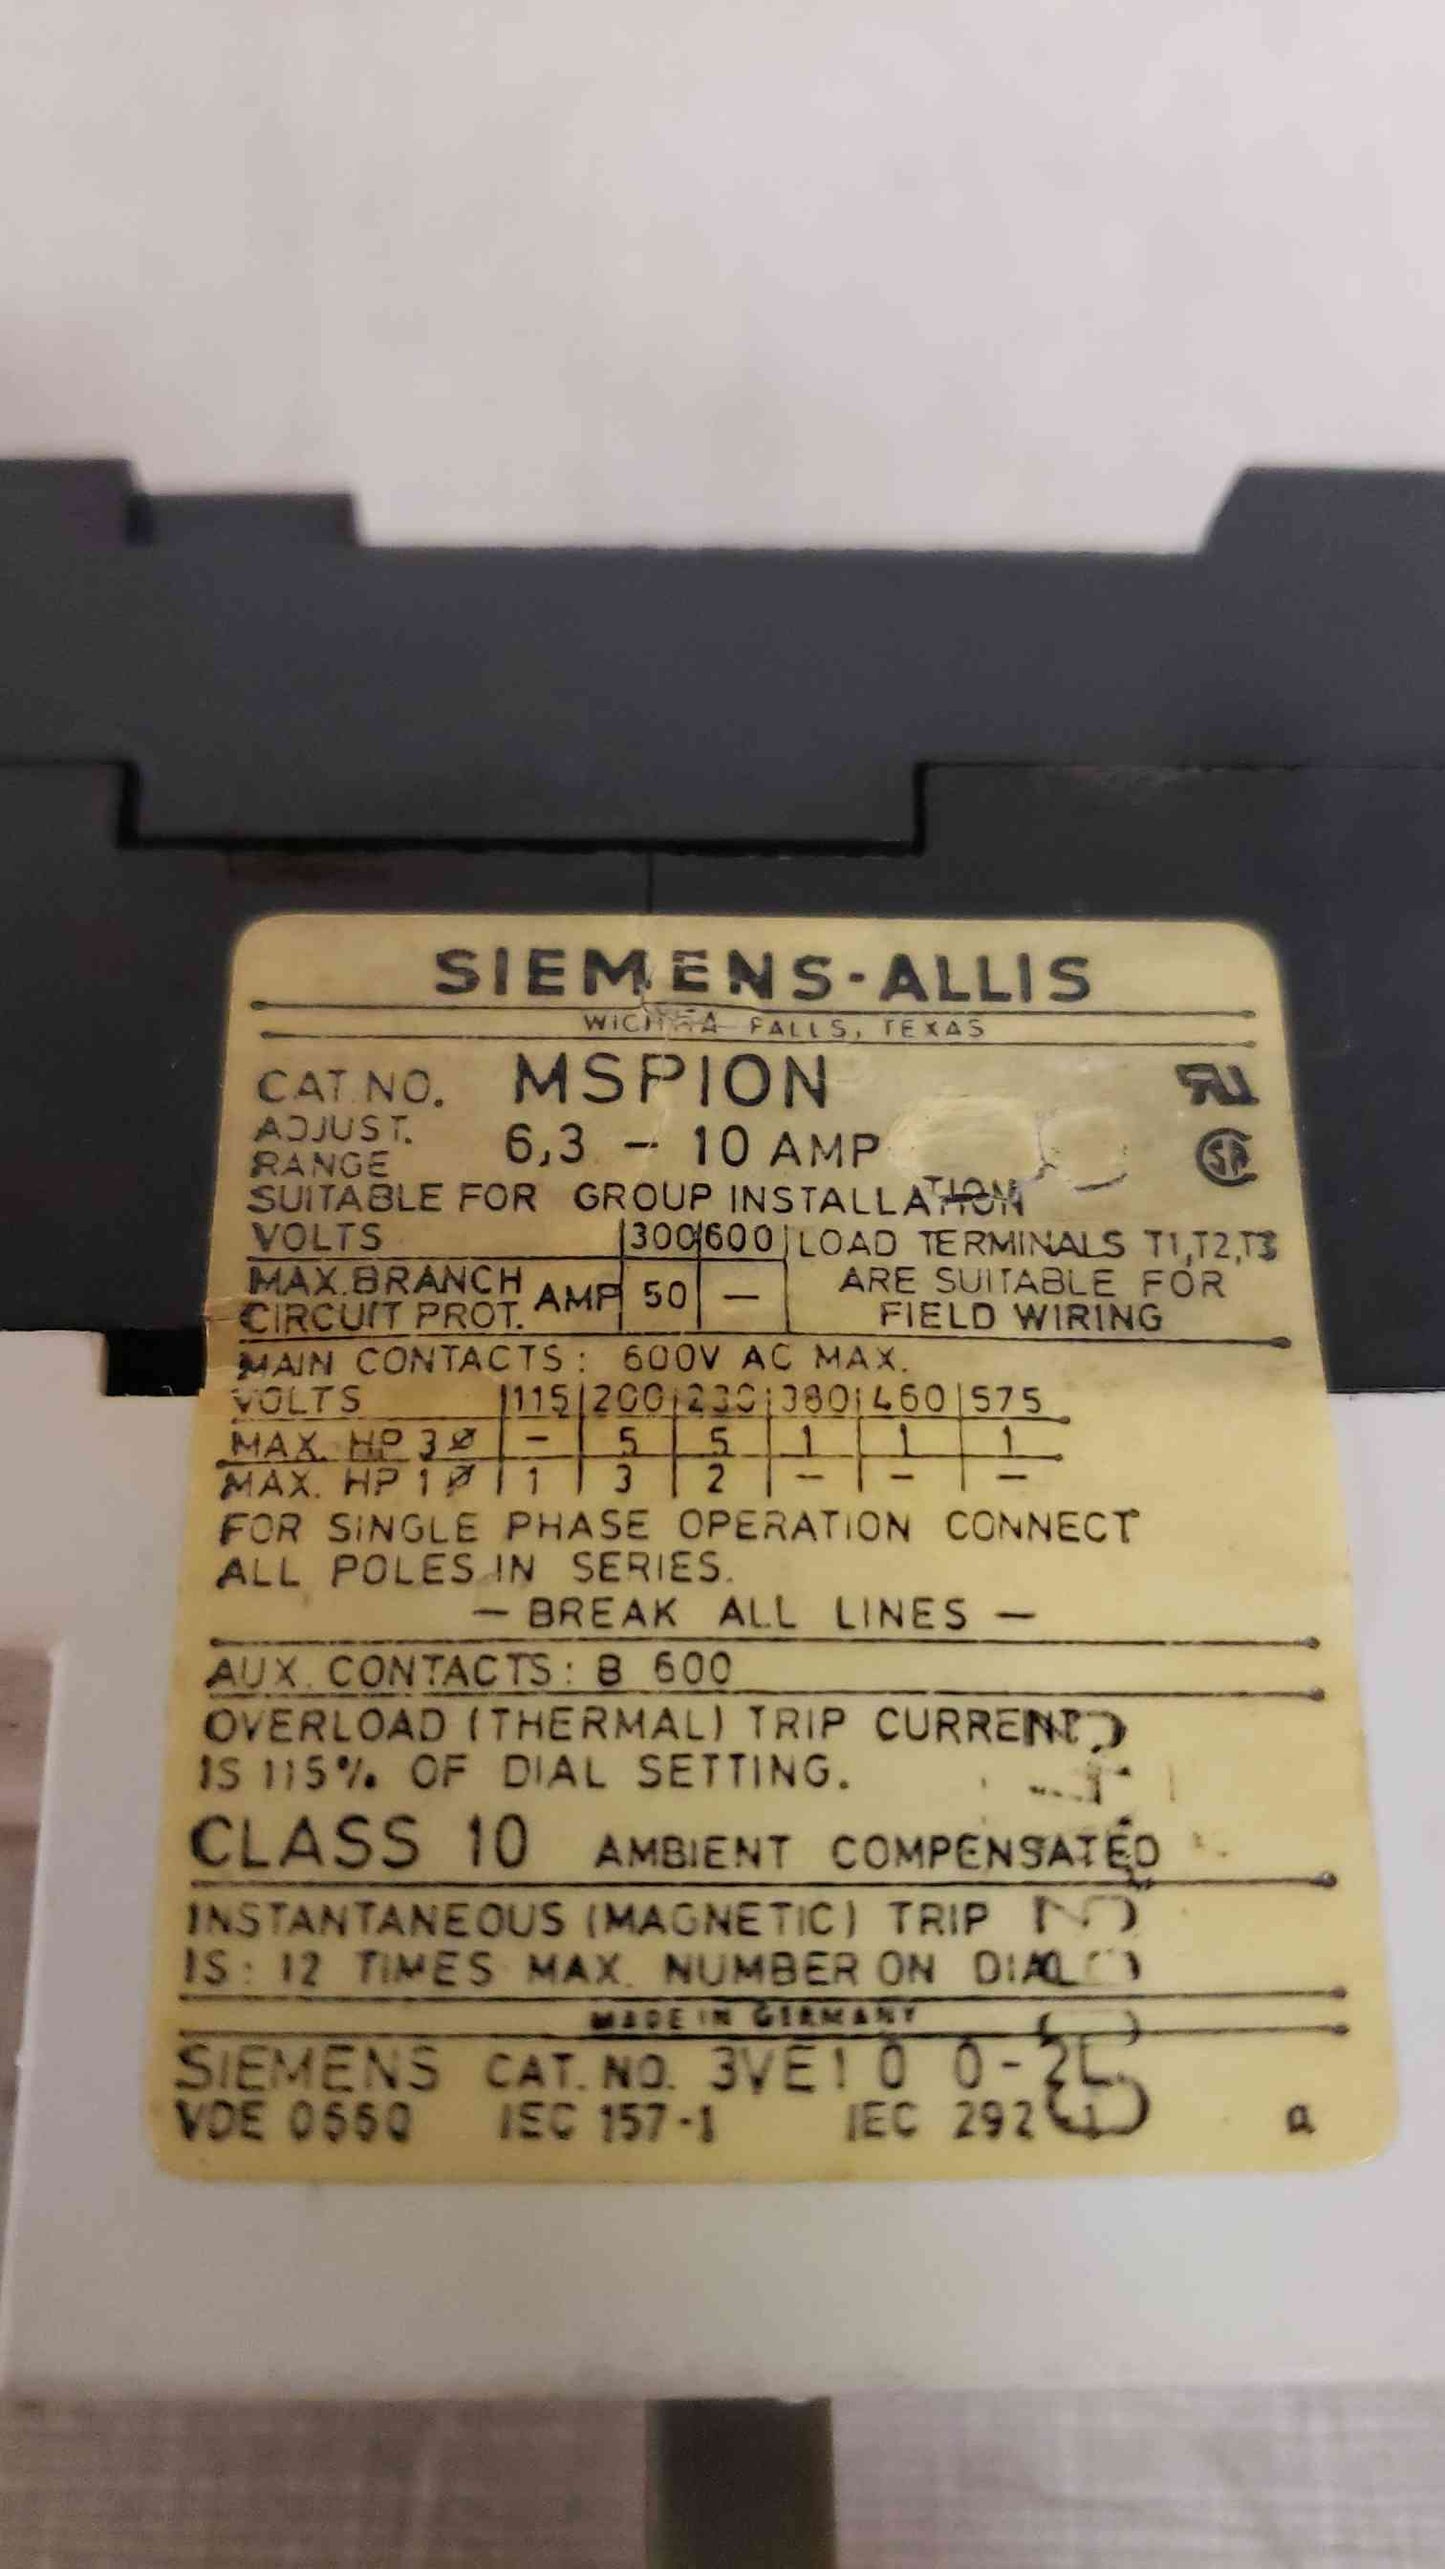 SIEMENS-ALLIS
WICHITA FALLS, TEXAS
CAT. NO. MSP10N
ADJUST. RANGE 6,3 - 10 AMP
SUITABLE FOR GROUP INSTALLATION
VOLTS 300 600 LOAD TERMINALS T1,T2,T3
MAX. BRANCH CIRCUIT PROT. AMP 50 — ARE SUITABLE FOR FIELD WIRING
MAIN CONTACTS: 600V AC MAX.
VOLTS 115 200 230 380 460 575
MAX. HP 3Ø - 5 5 1 1 1
MAX. HP 1Ø 1 3 2 - - -
FOR SINGLE PHASE OPERATION CONNECT
ALL POLES IN SERIES.
— BREAK ALL LINES —
AUX. CONTACTS: B 600
OVERLOAD (THERMAL) TRIP CURRENT
IS 115% OF DIAL SETTING.
CLASS 10 AMBIENT COMPENSATED
INSTANTANEOUS (MAGNETIC) TRIP
IS: 12 TIMES MAX. NUMBER ON DIAL
MADE IN GERMANY
SIEMENS CAT. NO. 3VE10 0-2L
VDE 0660 IEC 157-1 IEC 292-1 a